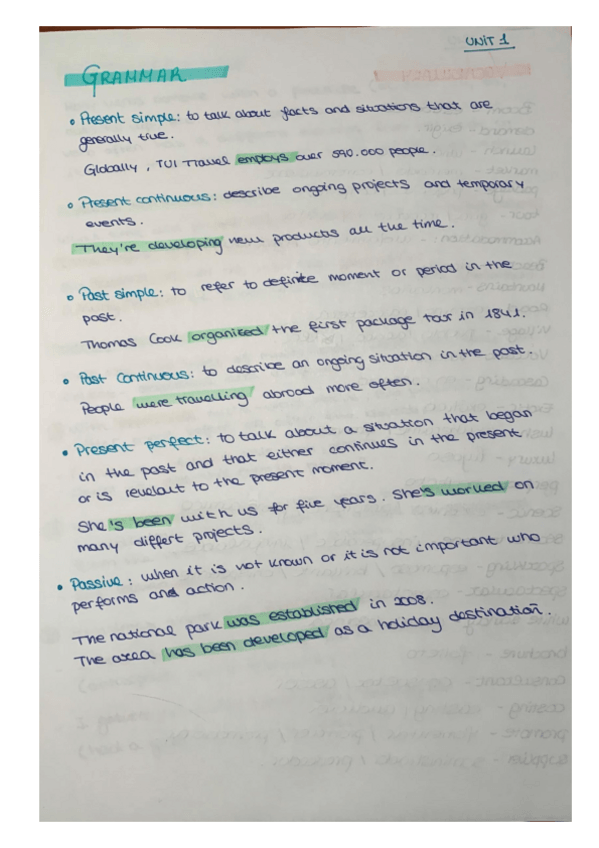 UNIT 1
GRAMMAR
• Present simple: to talk about facts and situations that are
generally true.
Globally, TUI Travel employs over 590.000 people.
• Present continuous: describe ongoing projects and temporary
events.
They're developing new products all the time.
• Past simple: to refer to definite moment or period in the
past.
Thomas Cook organised the first package tour in 1841.
• Past continuous: to describe an ongoing situation in the past.
People were travelling abroad more often.
• Present perfect: to talk about a situation that began
in the past and that either continues in the present
or is revelaut to the present moment.
She's been with us for five years. She's worked on
many differt projects.
• Passive: when it is not known or it is not important who
performs and action.
The national park was established in 2008.
The area has been developed as a holiday destination.